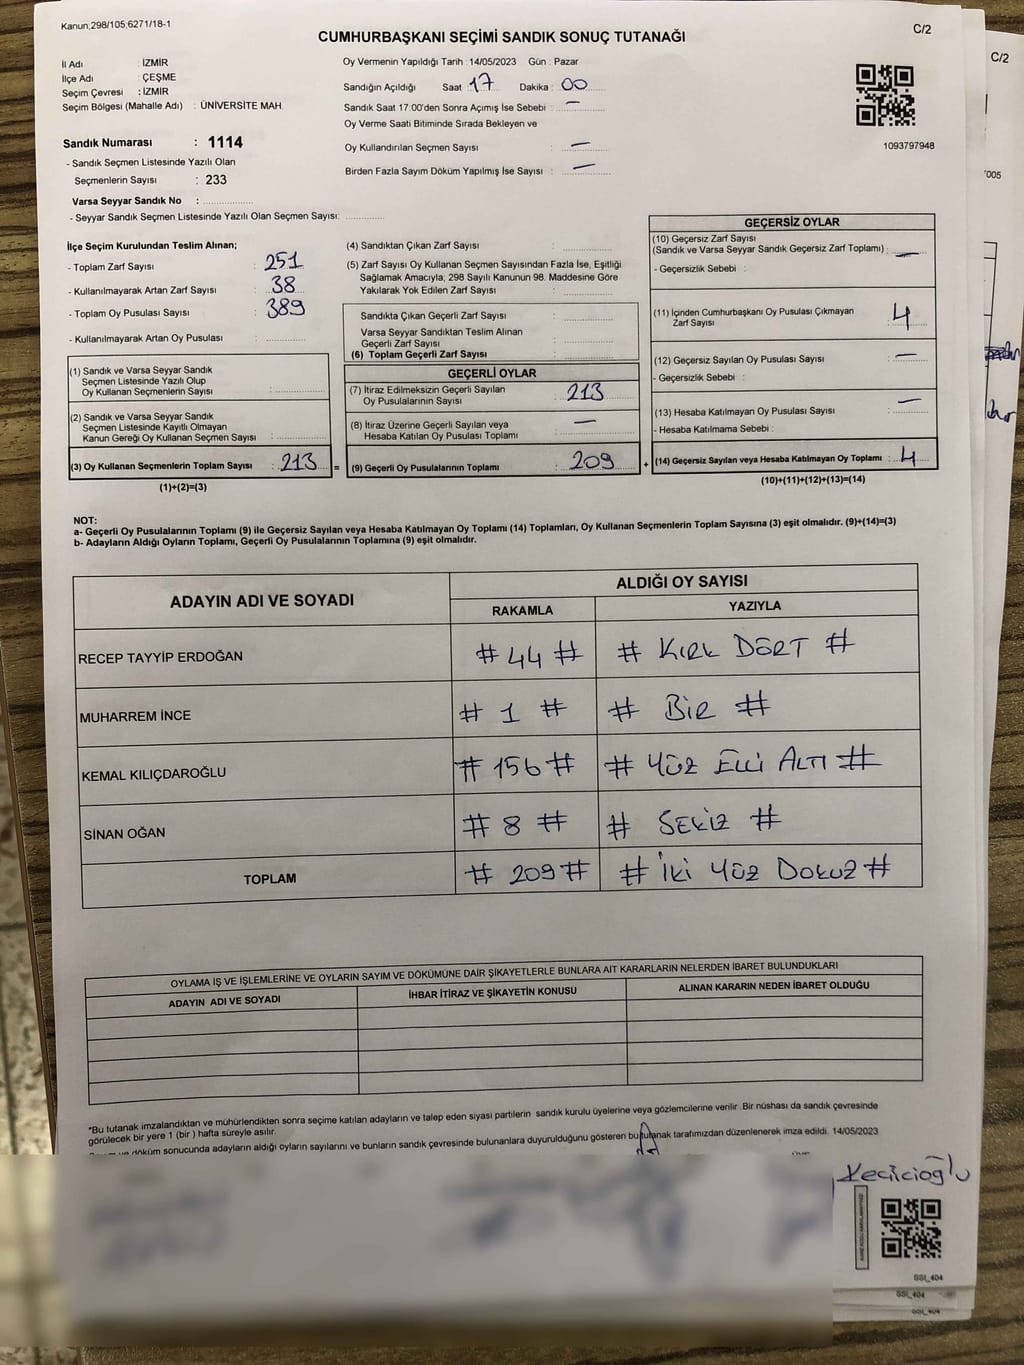 Kanun;298/105;6271/18-1
C/2
CUMHURBAŞKANI SEÇİMİ SANDIK SONUÇ TUTANAĞI
İl Adı : İZMİR
İlçe Adı : ÇEŞME
Seçim Çevresi : İZMİR
Seçim Bölgesi (Mahalle Adı) : ÜNİVERSİTE MAH.
Sandık Numarası : 1114
- Sandık Seçmen Listesinde Yazılı Olan
Seçmenlerin Sayısı : 233
Varsa Seyyar Sandık No :
- Seyyar Sandık Seçmen Listesinde Yazılı Olan Seçmen Sayısı:
Oy Vermenin Yapıldığı Tarih :14/05/2023 Gün : Pazar
Sandığın Açıldığı Saat 17 Dakika : 00
Sandık Saat 17:00'den Sonra Açımış İse Sebebi : —
Oy Verme Saati Bitiminde Sırada Bekleyen ve
Oy Kullandırılan Seçmen Sayısı : —
Birden Fazla Sayım Döküm Yapılmış İse Sayısı : —
1093797948
İlçe Seçim Kurulundan Teslim Alınan;
- Toplam Zarf Sayısı : 251
- Kullanılmayarak Artan Zarf Sayısı : 38
- Toplam Oy Pusulası Sayısı : 389
- Kullanılmayarak Artan Oy Pusulası :
(1) Sandık ve Varsa Seyyar Sandık
Seçmen Listesinde Yazılı Olup
Oy Kullanan Seçmenlerin Sayısı :
(2) Sandık ve Varsa Seyyar Sandık
Seçmen Listesinde Kayıtlı Olmayan
Kanun Gereği Oy Kullanan Seçmen Sayısı :
(3) Oy Kullanan Seçmenlerin Toplam Sayısı : 213 =
(1)+(2)=(3)
(4) Sandıktan Çıkan Zarf Sayısı :
(5) Zarf Sayısı Oy Kullanan Seçmen Sayısından Fazla İse, Eşitliği
Sağlamak Amacıyla; 298 Sayılı Kanunun 98. Maddesine Göre
Yakılarak Yok Edilen Zarf Sayısı :
Sandıkta Çıkan Geçerli Zarf Sayısı :
Varsa Seyyar Sandıktan Teslim Alınan
Geçerli Zarf Sayısı :
(6) Toplam Geçerli Zarf Sayısı :
GEÇERLİ OYLAR
(7) İtiraz Edilmeksizin Geçerli Sayılan
Oy Pusulalarının Sayısı : 213
(8) İtiraz Üzerine Geçerli Sayılan veya
Hesaba Katılan Oy Pusulası Toplamı : —
(9) Geçerli Oy Pusulalarının Toplamı : 209 +
GEÇERSİZ OYLAR
(10) Geçersiz Zarf Sayısı
(Sandık ve Varsa Seyyar Sandık Geçersiz Zarf Toplamı) : —
- Geçersizlik Sebebi :
(11) İçinden Cumhurbaşkanı Oy Pusulası Çıkmayan
Zarf Sayısı : 4
(12) Geçersiz Sayılan Oy Pusulası Sayısı : —
- Geçersizlik Sebebi :
(13) Hesaba Katılmayan Oy Pusulası Sayısı : —
- Hesaba Katılmama Sebebi :
(14) Geçersiz Sayılan veya Hesaba Katılmayan Oy Toplamı : 4
(10)+(11)+(12)+(13)=(14)
NOT:
a- Geçerli Oy Pusulalarının Toplamı (9) ile Geçersiz Sayılan veya Hesaba Katılmayan Oy Toplamı (14) Toplamları, Oy Kullanan Seçmenlerin Toplam Sayısına (3) eşit olmalıdır. (9)+(14)=(3)
b- Adayların Aldığı Oyların Toplamı, Geçerli Oy Pusulalarının Toplamına (9) eşit olmalıdır.
ADAYIN ADI VE SOYADI
ALDIĞI OY SAYISI
RAKAMLA YAZIYLA
RECEP TAYYİP ERDOĞAN # 44 # # KIRK DÖRT #
MUHARREM İNCE # 1 # # Bir #
KEMAL KILIÇDAROĞLU # 156 # # YÜZ ELLİ ALTI #
SİNAN OĞAN # 8 # # SEKİZ #
TOPLAM # 209 # # İki YÜZ DOKUZ #
OYLAMA İŞ VE İŞLEMLERİNE VE OYLARIN SAYIM VE DÖKÜMÜNE DAİR ŞİKAYETLERLE BUNLARA AİT KARARLARIN NELERDEN İBARET BULUNDUKLARI
ADAYIN ADI VE SOYADI İHBAR İTİRAZ VE ŞİKAYETİN KONUSU ALINAN KARARIN NEDEN İBARET OLDUĞU
*Bu tutanak imzalandıktan ve mühürlendikten sonra seçime katılan adayların ve talep eden siyasi partilerin sandık kurulu üyelerine veya gözlemcilerine verilir .Bir nüshası da sandık çevresinde
görülecek bir yere 1 (bir ) hafta süreyle asılır.
döküm sonucunda adayların aldığı oyların sayılarını ve bunların sandık çevresinde bulunanlara duyurulduğunu gösteren bu tutanak tarafımızdan düzenlenerek imza edildi. 14/05/2023
Kecicioğlu
SSI_404
SSI_404
SSI_404
C/2